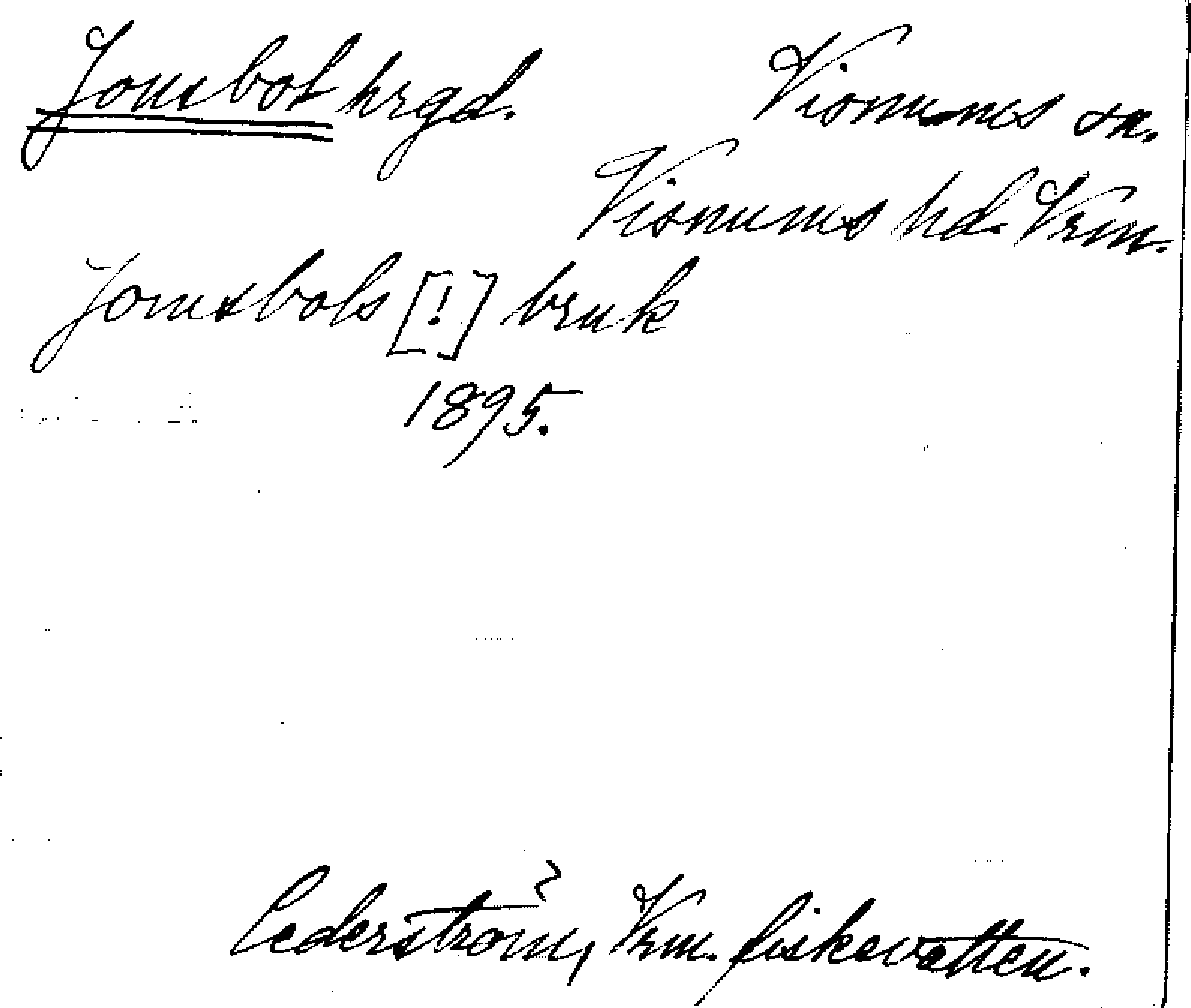 Jonsbol hrgd. Visnums sn.
Visnums hd. Vrm.
Jonsbols [!] bruk
1895.
Cederström, Vrm. fiskevatten.